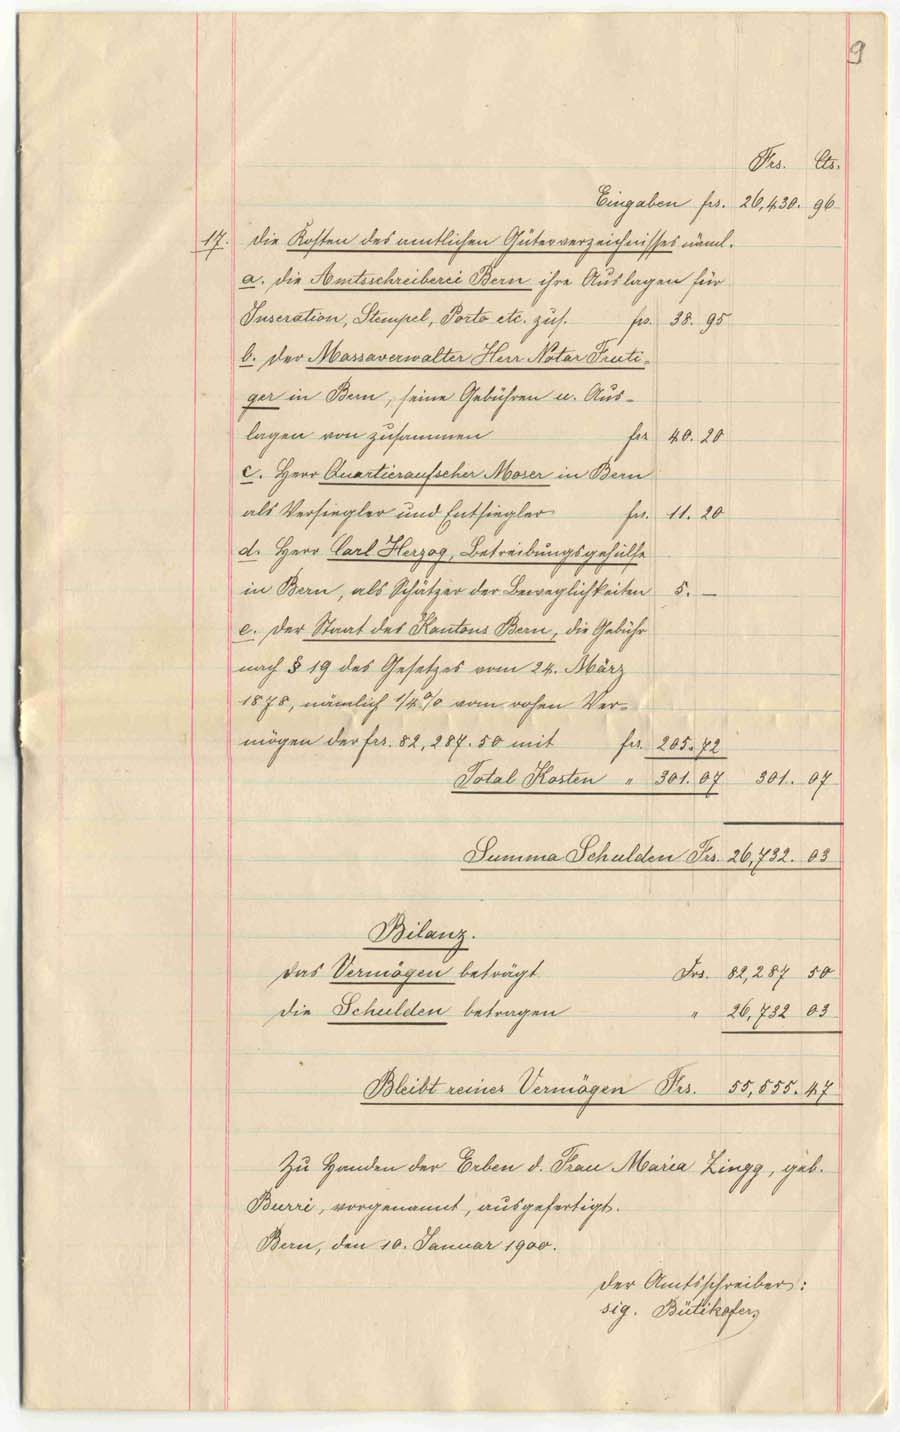 9
Frs. Cts.
Eingaben frs. 26,430. 96
17. die Kosten des amtlichen Güterverzeichnisses näml.
a. die Amtsschreiberei Bern ihre Auslagen für
Inseration, Stempel, Porto etc. zus. frs. 38. 95
b. der Massaverwalter Herr Notar Fruti-
ger in Bern, seine Gebühren u. Aus-
lagen von zusammen frs 40. 20
c. Herr Quartieraufseher Moser in Bern
als Versiegler und Entsiegler frs. 11. 20
d. Herr Carl Herzog, Betreibungsgehülfe
in Bern, als Schätzer der Beweglichkeiten 5. —
e. der Staat des Kantons Bern, die Gebühr
nach § 19 des Gesetzes vom 24. März
1878, nämlich 1/4 % vom rohen Ver-
mögen der frs. 82,287.50 mit frs. 205.72
Total Kosten " 301.07 301. 07
Summa Schulden Frs. 26,732. 03
Bilanz.
das Vermögen beträgt Frs. 82,287 50
die Schulden betragen " 26,732 03
Bleibt reines Vermögen Frs. 55,555.47
Zu Handen der Erben d. Frau Maria Zingg, geb.
Burri, vorgenannt, ausgefertigt.
Bern, den 10. Januar 1900.
der Amtsschreiber:
sig. Bütikofer